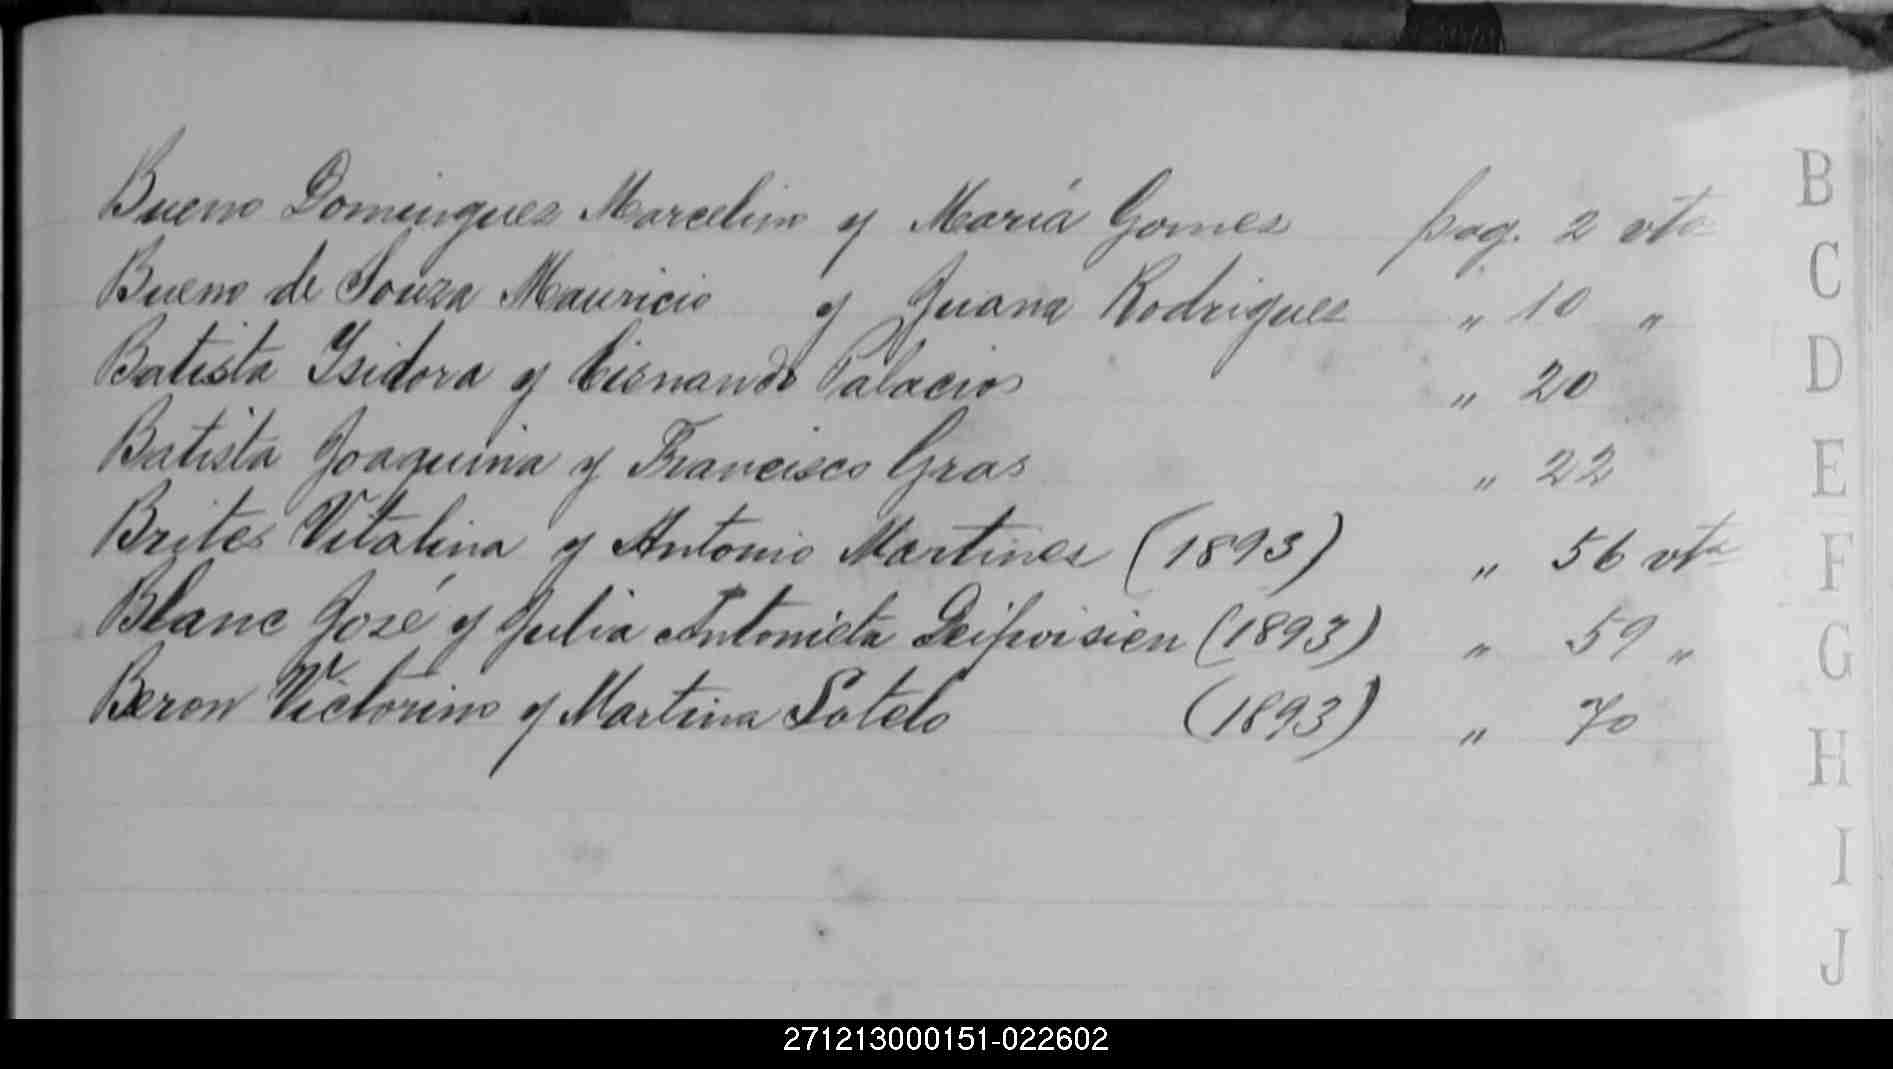 Bueno Domingues Marcelino y María Gomes pag. 2 vta
Bueno de Souza Mauricio y Juana Rodrigues " 10 "
Batista Ysidora y Cisnando Palacios " 20
Batista Joaquina y Francisco Gras " 22
Brites Vitalina y Antonio Martines (1893) " 56 vta
Blanc José y Julia Antonieta (1893) " 59 "
Beron Victorino y Martina Sotelo (1893) " 70
B
C
D
E
F
G
H
I
J
271213000151-022602